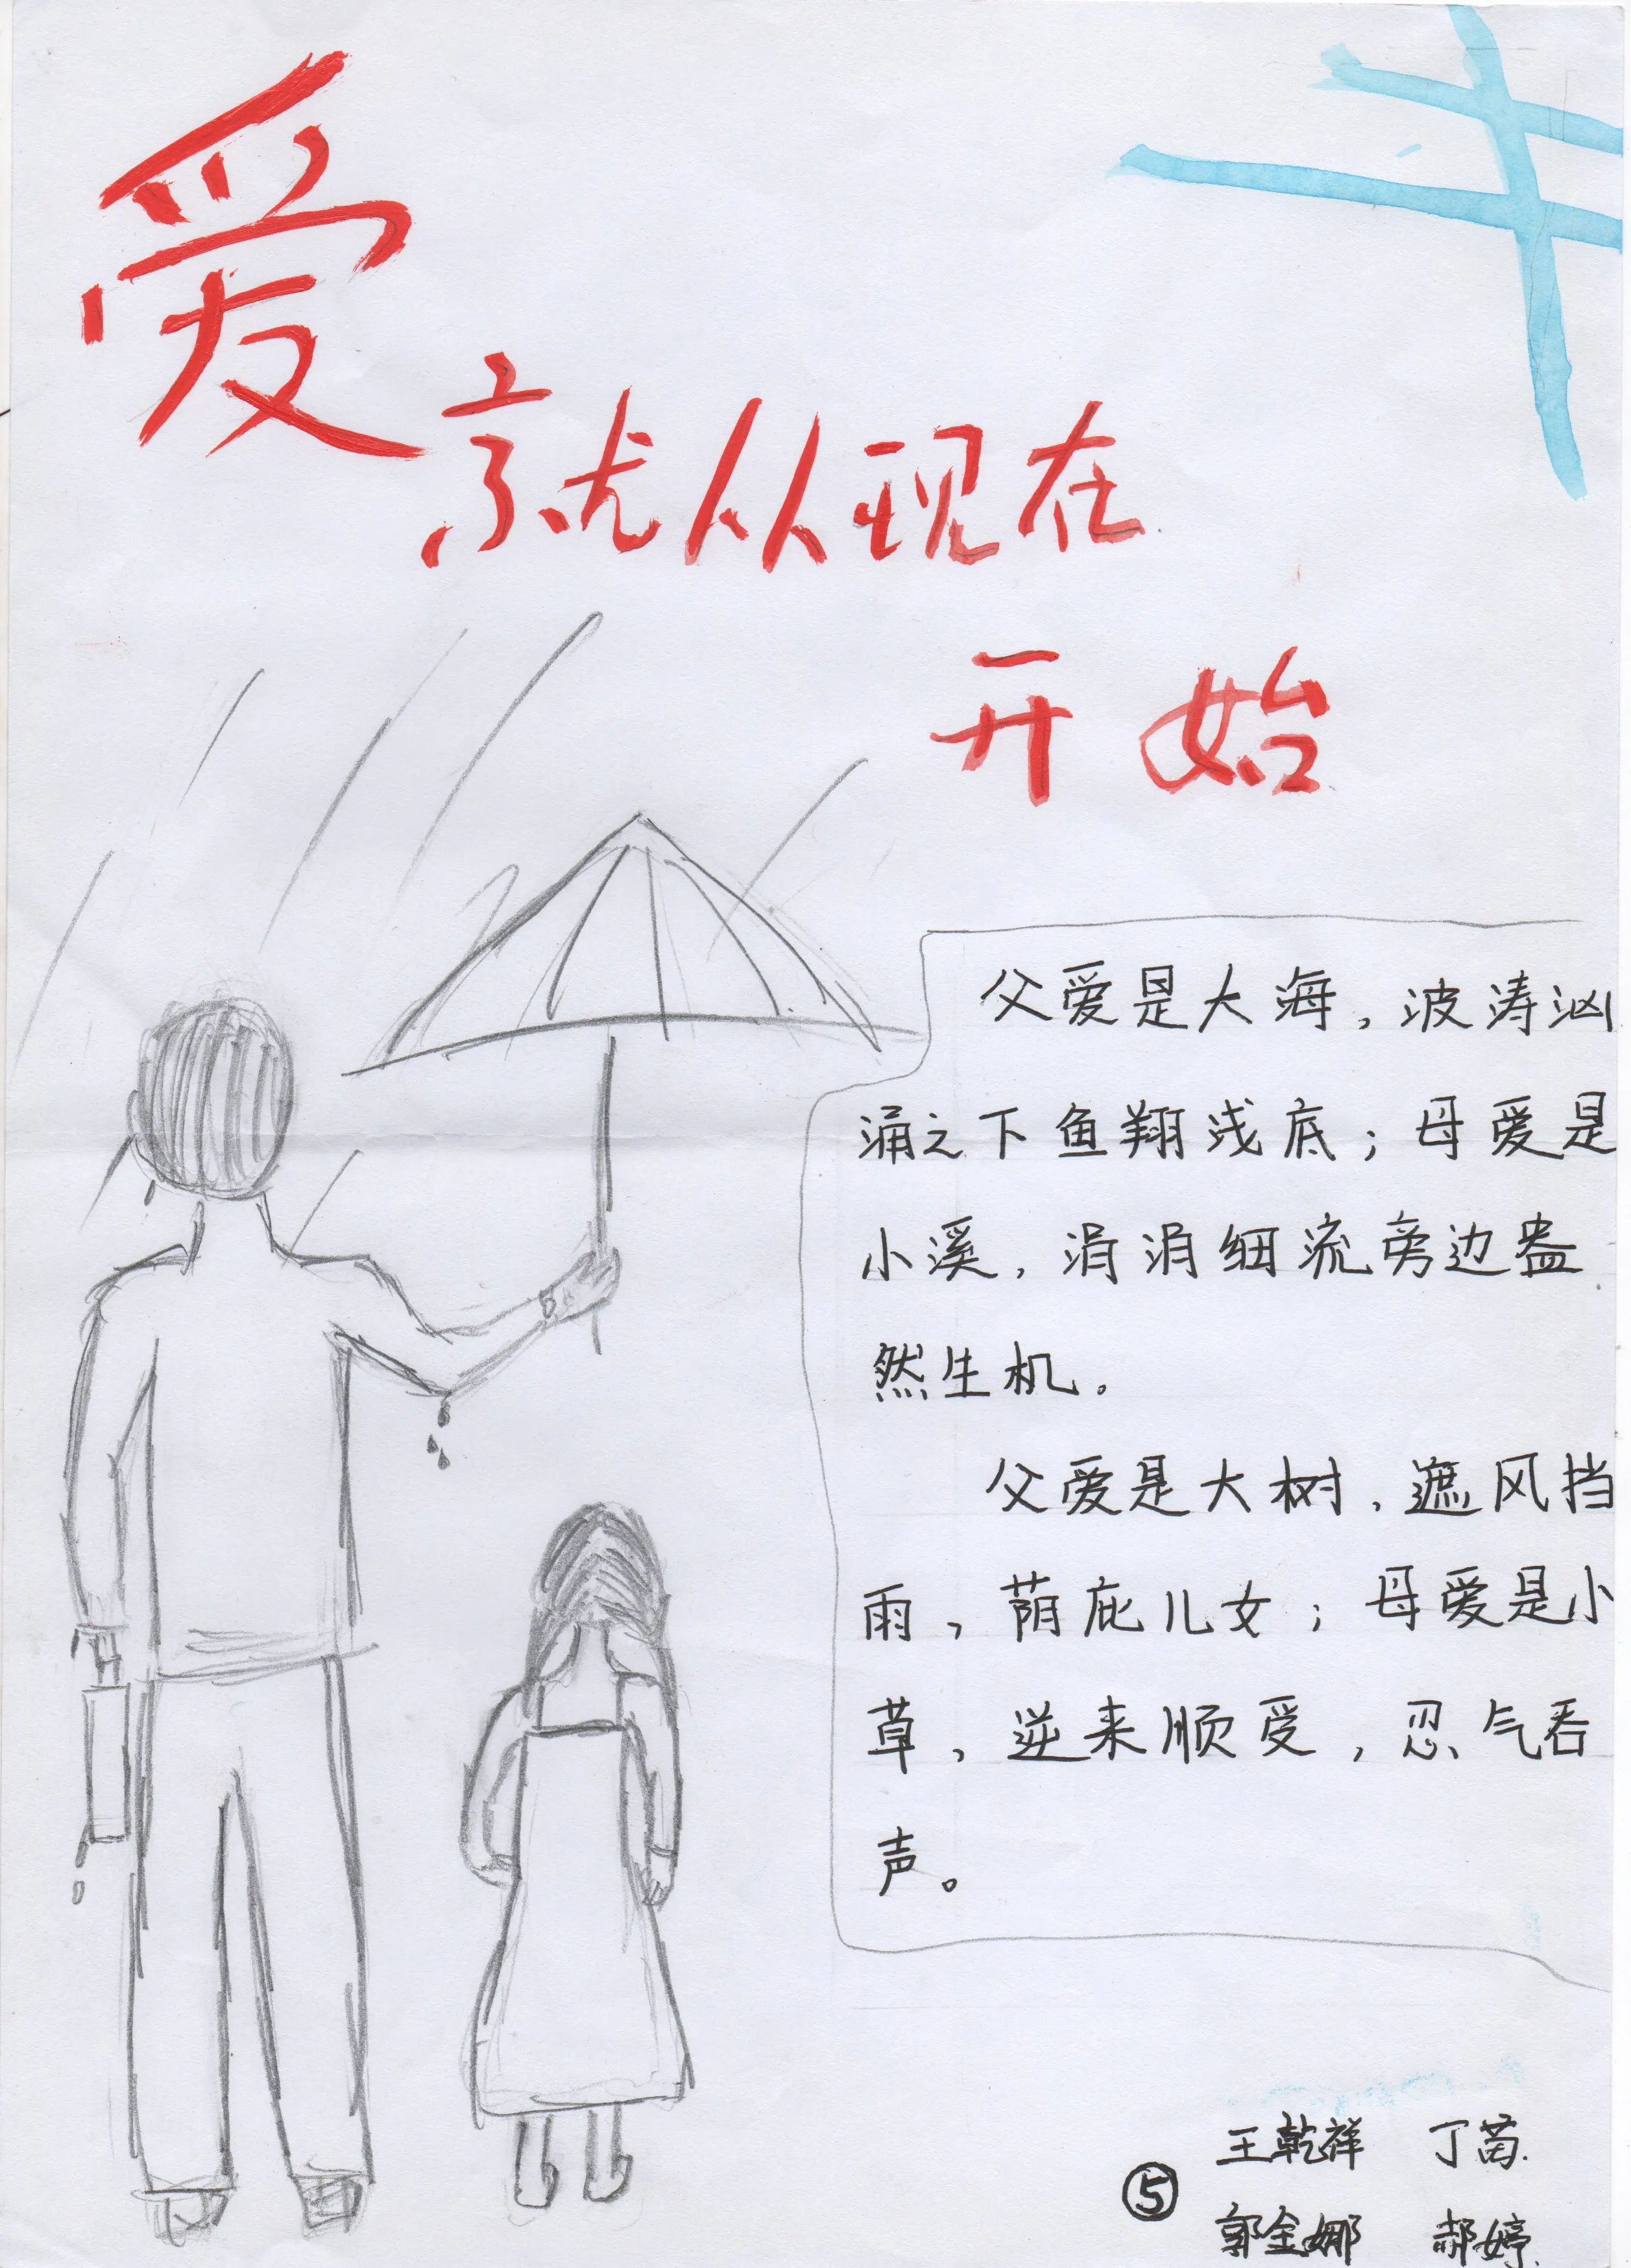 爱
就从现在
开始
父爱是大海，波涛汹
涌之下鱼翔浅底；母爱是
小溪，涓涓细流旁边盎
然生机。
父爱是大树，遮风挡
雨，荫庇儿女；母爱是小
草，逆来顺受，忍气吞
声。
王乾祥 丁苗
⑤
郭金娜 郝婷